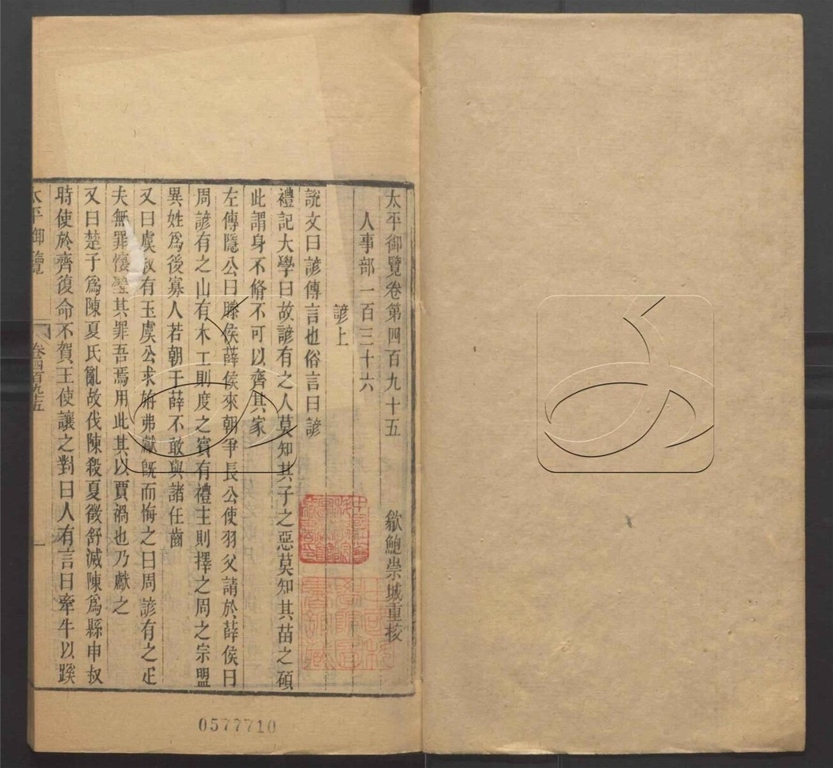 太平御覽卷第四百九十五
歙鮑崇城重校
人事部一百三十六
諺上
說文曰諺傳言也俗言曰諺
禮記大學曰故諺有之人莫知其子之惡莫知其苗之碩
此謂身不脩不可以齊其家
左傳隱公曰滕侯薛侯來朝爭長公使羽父請於薛侯曰
周諺有之山有木工則度之賓有禮主則擇之周之宗盟
異姓爲後寡人若朝于薛不敢與諸任齒
又曰虞叔有玉虞公求旃弗獻既而悔之曰周諺有之疋
夫無罪懷璧其罪吾焉用此其以賈禍也乃獻之
又曰楚子爲陳夏氏亂故伐陳殺夏徵舒滅陳爲縣申叔
時使於齊復命不賀王使讓之對曰人有言曰牽牛以蹊
太平御覽
卷四百九十五
一
0577710